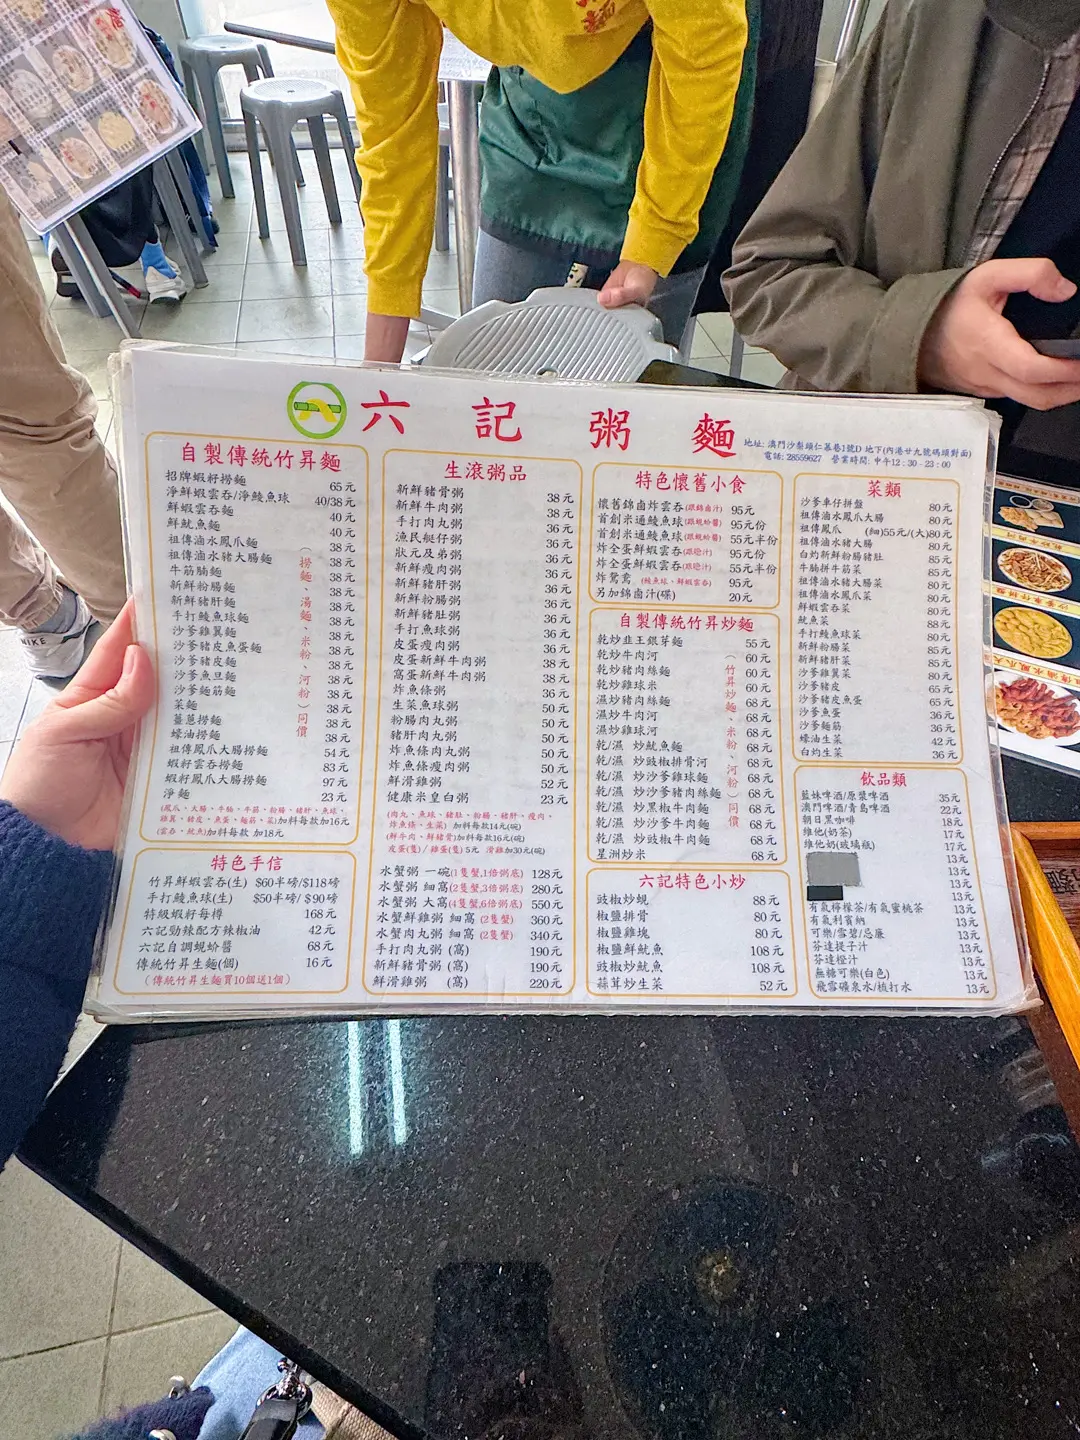 六記粥麵
地址: 澳門沙梨頭仁慕巷1號D 地下(內港廿九號碼頭對面)
電話: 28559627 營業時間: 中午12:30-23:00
自製傳統竹昇麵
招牌蝦籽撈麵 65元
淨鮮蝦雲吞/淨鯪魚球 40/38元
鮮蝦雲麵 40元
鮮魷魚麵 40元
祖傳滷水鳳爪麵 38元
祖傳滷水豬大腸麵 38元
牛筋腩麵 38元
新鮮粉腸麵 38元
新鮮豬肝麵 38元
手打鯪魚球麵 38元
沙爹雞翼麵 38元
沙爹豬皮魚蛋麵 38元
沙爹豬皮麵 38元
沙爹魚旦麵 38元
沙爹麵筋麵 38元
菜麵 38元
薑蔥撈麵 38元
蠔油撈麵 38元
祖傳鳳爪大腸撈麵 54元
蝦籽雲吞撈麵 83元
蝦籽鳳爪大腸撈麵 97元
淨麵 23元
(撈麵、湯麵、米粉、河粉)同價
(鳳爪、大腸、牛腩、牛筋、粉腸、豬肝、魚球、
雞翼、豬皮、魚蛋、麵筋、菜)加料每款加16元
(雲吞、魷魚)加料每款 加18元
特色手信
竹昇鮮蝦雲吞(生) $60半磅/$118磅
手打鯪魚球(生) $50半磅/$90磅
特級蝦籽每樽 168元
六記勁辣配方辣椒油 42元
六記自調蜆蚧醬 68元
傳統竹昇生麵(個) 16元
(傳統竹昇生麵買10個送1個)
生滾粥品
新鮮豬骨粥 38元
新鮮牛肉粥 38元
手打肉丸粥 38元
漁民艇仔粥 36元
狀元及弟粥 36元
新鮮瘦肉粥 36元
新鮮豬肝粥 36元
新鮮粉腸粥 36元
新鮮豬肚粥 36元
手打魚球粥 36元
皮蛋瘦肉粥 36元
皮蛋新鮮牛肉粥 38元
窩蛋新鮮牛肉粥 38元
炸魚條粥 36元
生菜魚球粥 50元
粉腸肉丸粥 50元
豬肝肉丸粥 50元
炸魚條肉丸粥 50元
炸魚條瘦肉粥 50元
鮮滑雞粥 52元
健康米皇白粥 23元
(肉丸、魚球、豬肚、粉腸、豬肝、瘦肉、
炸魚條、生菜) 加料每款14元(碗)
(鮮牛肉、鮮豬骨)加料每款16元(碗)
皮蛋(隻)/雞蛋(隻)5元 滑雞加30元(碗)
水蟹粥 一碗(1隻蟹,1倍粥底) 128元
水蟹粥 細窩(2隻蟹,3倍粥底) 280元
水蟹粥 大窩(4隻蟹,6倍粥底) 550元
水蟹鮮雞粥 細窩 (2隻蟹) 360元
水蟹肉丸粥 細窩 (2隻蟹) 340元
手打肉丸粥 (窩) 190元
新鮮豬骨粥 (窩) 190元
鮮滑雞粥 (窩) 220元
特色懷舊小食
懷舊錦鹵炸雲吞(跟錦鹵汁) 95元
首創米通鯪魚球(跟蜆蚧醬) 95元份
首創米通鯪魚球(跟蜆蚧醬) 55元半份
炸全蛋鮮蝦雲吞 95元份
炸全蛋鮮蝦雲吞 55元半份
炸鴛鴦 (鯪魚球、鮮蝦雲吞) 95元
另加錦鹵汁(碟) 20元
自製傳統竹昇炒麵
乾炒韭王銀芽麵 55元
乾炒牛肉河 60元
乾炒豬肉絲麵 60元
乾炒雞球米 60元
濕炒豬肉絲麵 68元
濕炒牛肉河 68元
濕炒雞球河 68元
乾/濕 炒魷魚麵 68元
乾/濕 炒豉椒排骨河 68元
乾/濕 炒沙爹雞球麵 68元
乾/濕 炒沙爹豬肉絲麵 68元
乾/濕 炒黑椒牛肉麵 68元
乾/濕 炒沙爹牛肉麵 68元
乾/濕 炒豉椒牛肉麵 68元
星洲炒米 68元
(竹昇炒麵、米粉、河粉)同價
六記特色小炒
豉椒炒蜆 88元
椒鹽排骨 80元
椒鹽雞塊 80元
椒鹽鮮魷魚 108元
豉椒炒魷魚 108元
蒜茸炒生菜 52元
菜類
沙爹車仔拼盤 80元
祖傳滷水鳳爪大腸 80元
祖傳鳳爪 (細)55元/(大)80元
祖傳滷水豬大腸 80元
白灼新鮮粉腸豬肚 85元
牛腩拼牛筋菜 85元
祖傳滷水豬大腸菜 80元
祖傳滷水鳳爪菜 80元
鮮蝦雲吞菜 80元
魷魚菜 88元
手打鯪魚球菜 80元
新鮮粉腸菜 85元
新鮮豬肝菜 85元
沙爹雞翼菜 80元
沙爹豬皮 65元
沙爹豬皮魚蛋 65元
沙爹魚蛋 36元
沙爹麵筋 36元
蠔油生菜 42元
白灼生菜 36元
飲品類
藍妹啤酒/原漿啤酒 35元
澳門啤酒/青島啤酒 22元
朝日黑咖啡 18元
維他(奶茶) 17元
維他奶(玻璃瓶) 17元
13元
13元
13元
有氣檸檬茶/有氣蜜桃茶 13元
有氣利賓納 13元
可樂/雪碧/忌廉 13元
芬達提子汁 13元
芬達橙汁 13元
無糖可樂(白色) 13元
飛雪礦泉水/梳打水 13元
NIKE